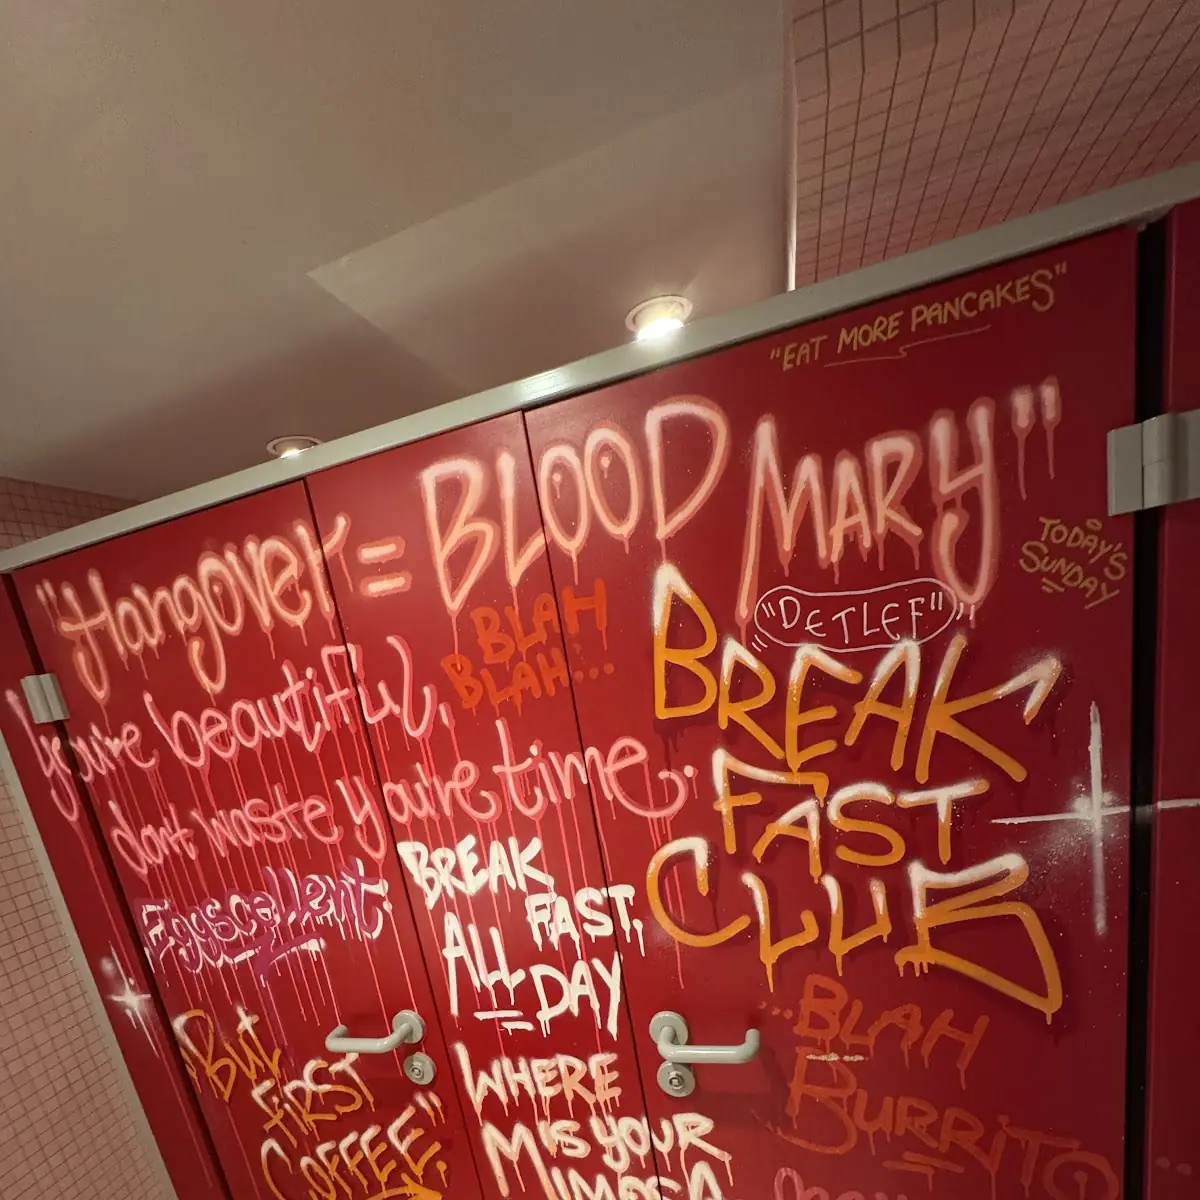 "EAT MORE PANCAKES"
"Hangover = BLOOD MARY"
TODAY'S
SUNDAY
BLAH
BLAH...
"DETLEF"
you're beautiful,
don't waste you're time.
BREAK
FAST
CLUB
Eggscellent
BREAK
FAST,
ALL
DAY
"BUT
FIRST
COFFEE"
WHERE
IS YOUR
MIMOSA
"BLAH
BURRITO